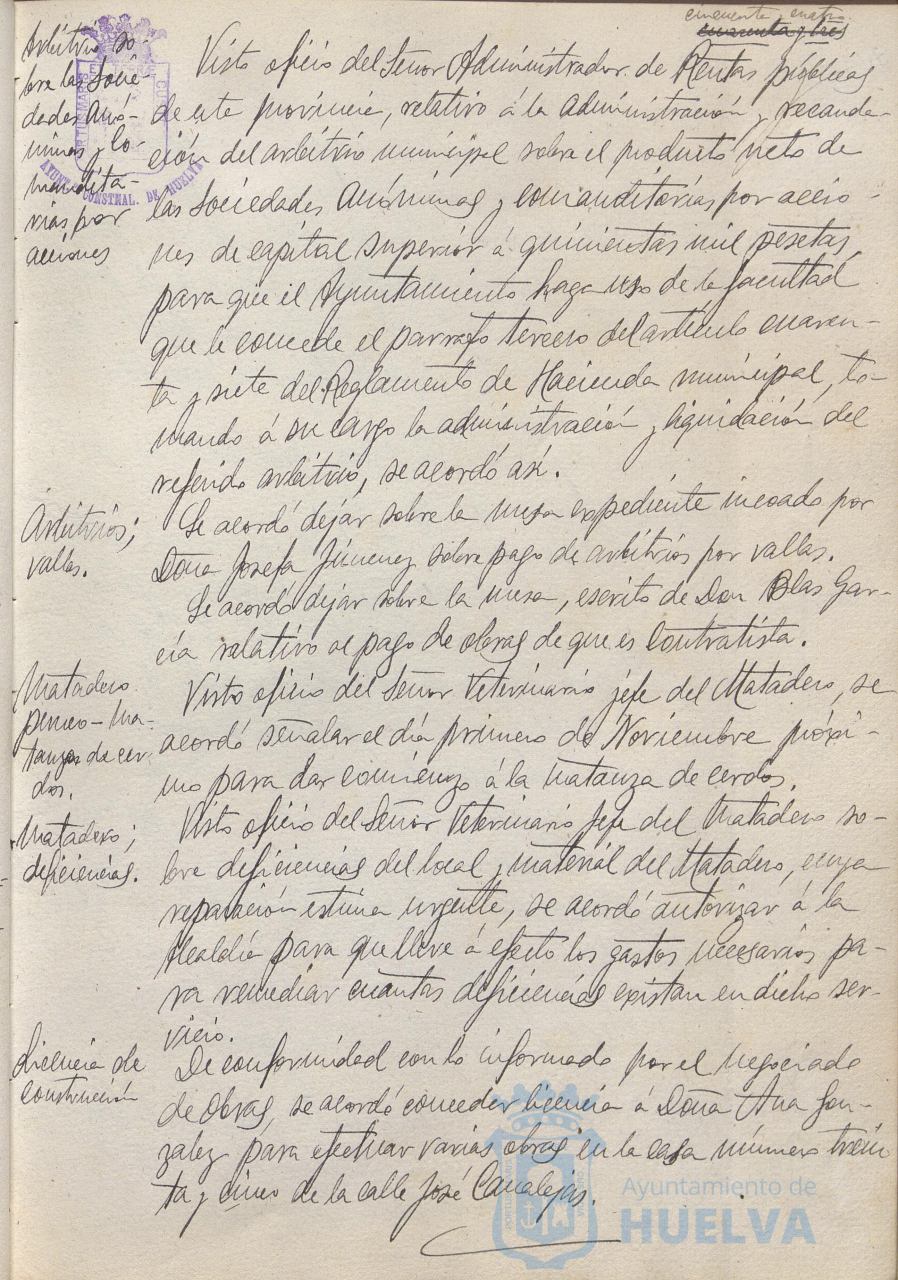 cincuenta y cuatro
cincuenta y tres
Arbitrio so-
bre las Socie-
dades Anó-
nimas y Co-
mandita-
rias por
acciones
Visto oficio del Señor Administrador de Rentas públicas
de esta provincia, relativo á la administración y recauda-
ción del arbitrio municipal sobre el producto neto de
las Sociedades Anónimas y comanditarias por accio-
nes de capital superior á quinientas mil pesetas,
para que el Ayuntamiento haga uso de la facultad
que le concede el parrafo tercero del artículo cuaren-
ta y siete del Reglamento de Hacienda municipal, to-
mando á su cargo la administración y liquidación del
referido arbitrio, se acordó así.
Arbitrios;
vallas.
Se acordó dejar sobre la mesa expediente incoado por
Doña Josefa Jimenez sobre pago de arbitrios por vallas.
Se acordó dejar sobre la mesa, escrito de Don Blas Gar-
cía relativo al pago de obras de que es contratista.
Matadero
Ma-
tanza de cer-
dos.
Visto oficio del Señor Veterinario jefe del Matadero, se
acordó señalar el día primero de Noviembre próxi-
mo para dar comienzo á la matanza de cerdos.
Matadero;
deficiencias.
Visto oficio del Señor Veterinario Jefe del Matadero so-
bre deficiencias del local y material del Matadero, cuya
reparación estima urgente, se acordó autorizar á la
Alcaldía para que lleve á efecto los gastos necesarios pa-
ra remediar cuantas deficiencias existan en dicho ser-
vicio.
Licencia de
construcción
De conformidad con lo informado por el negociado
de Obras, se acordó conceder licencia á Doña Ana Gon-
zalez para efectuar varias obras en la casa número trein
ta y cinco de la calle José Canalejas.
AYUNT. CONSTNAL. DE HUELVA
Ayuntamiento de
HUELVA